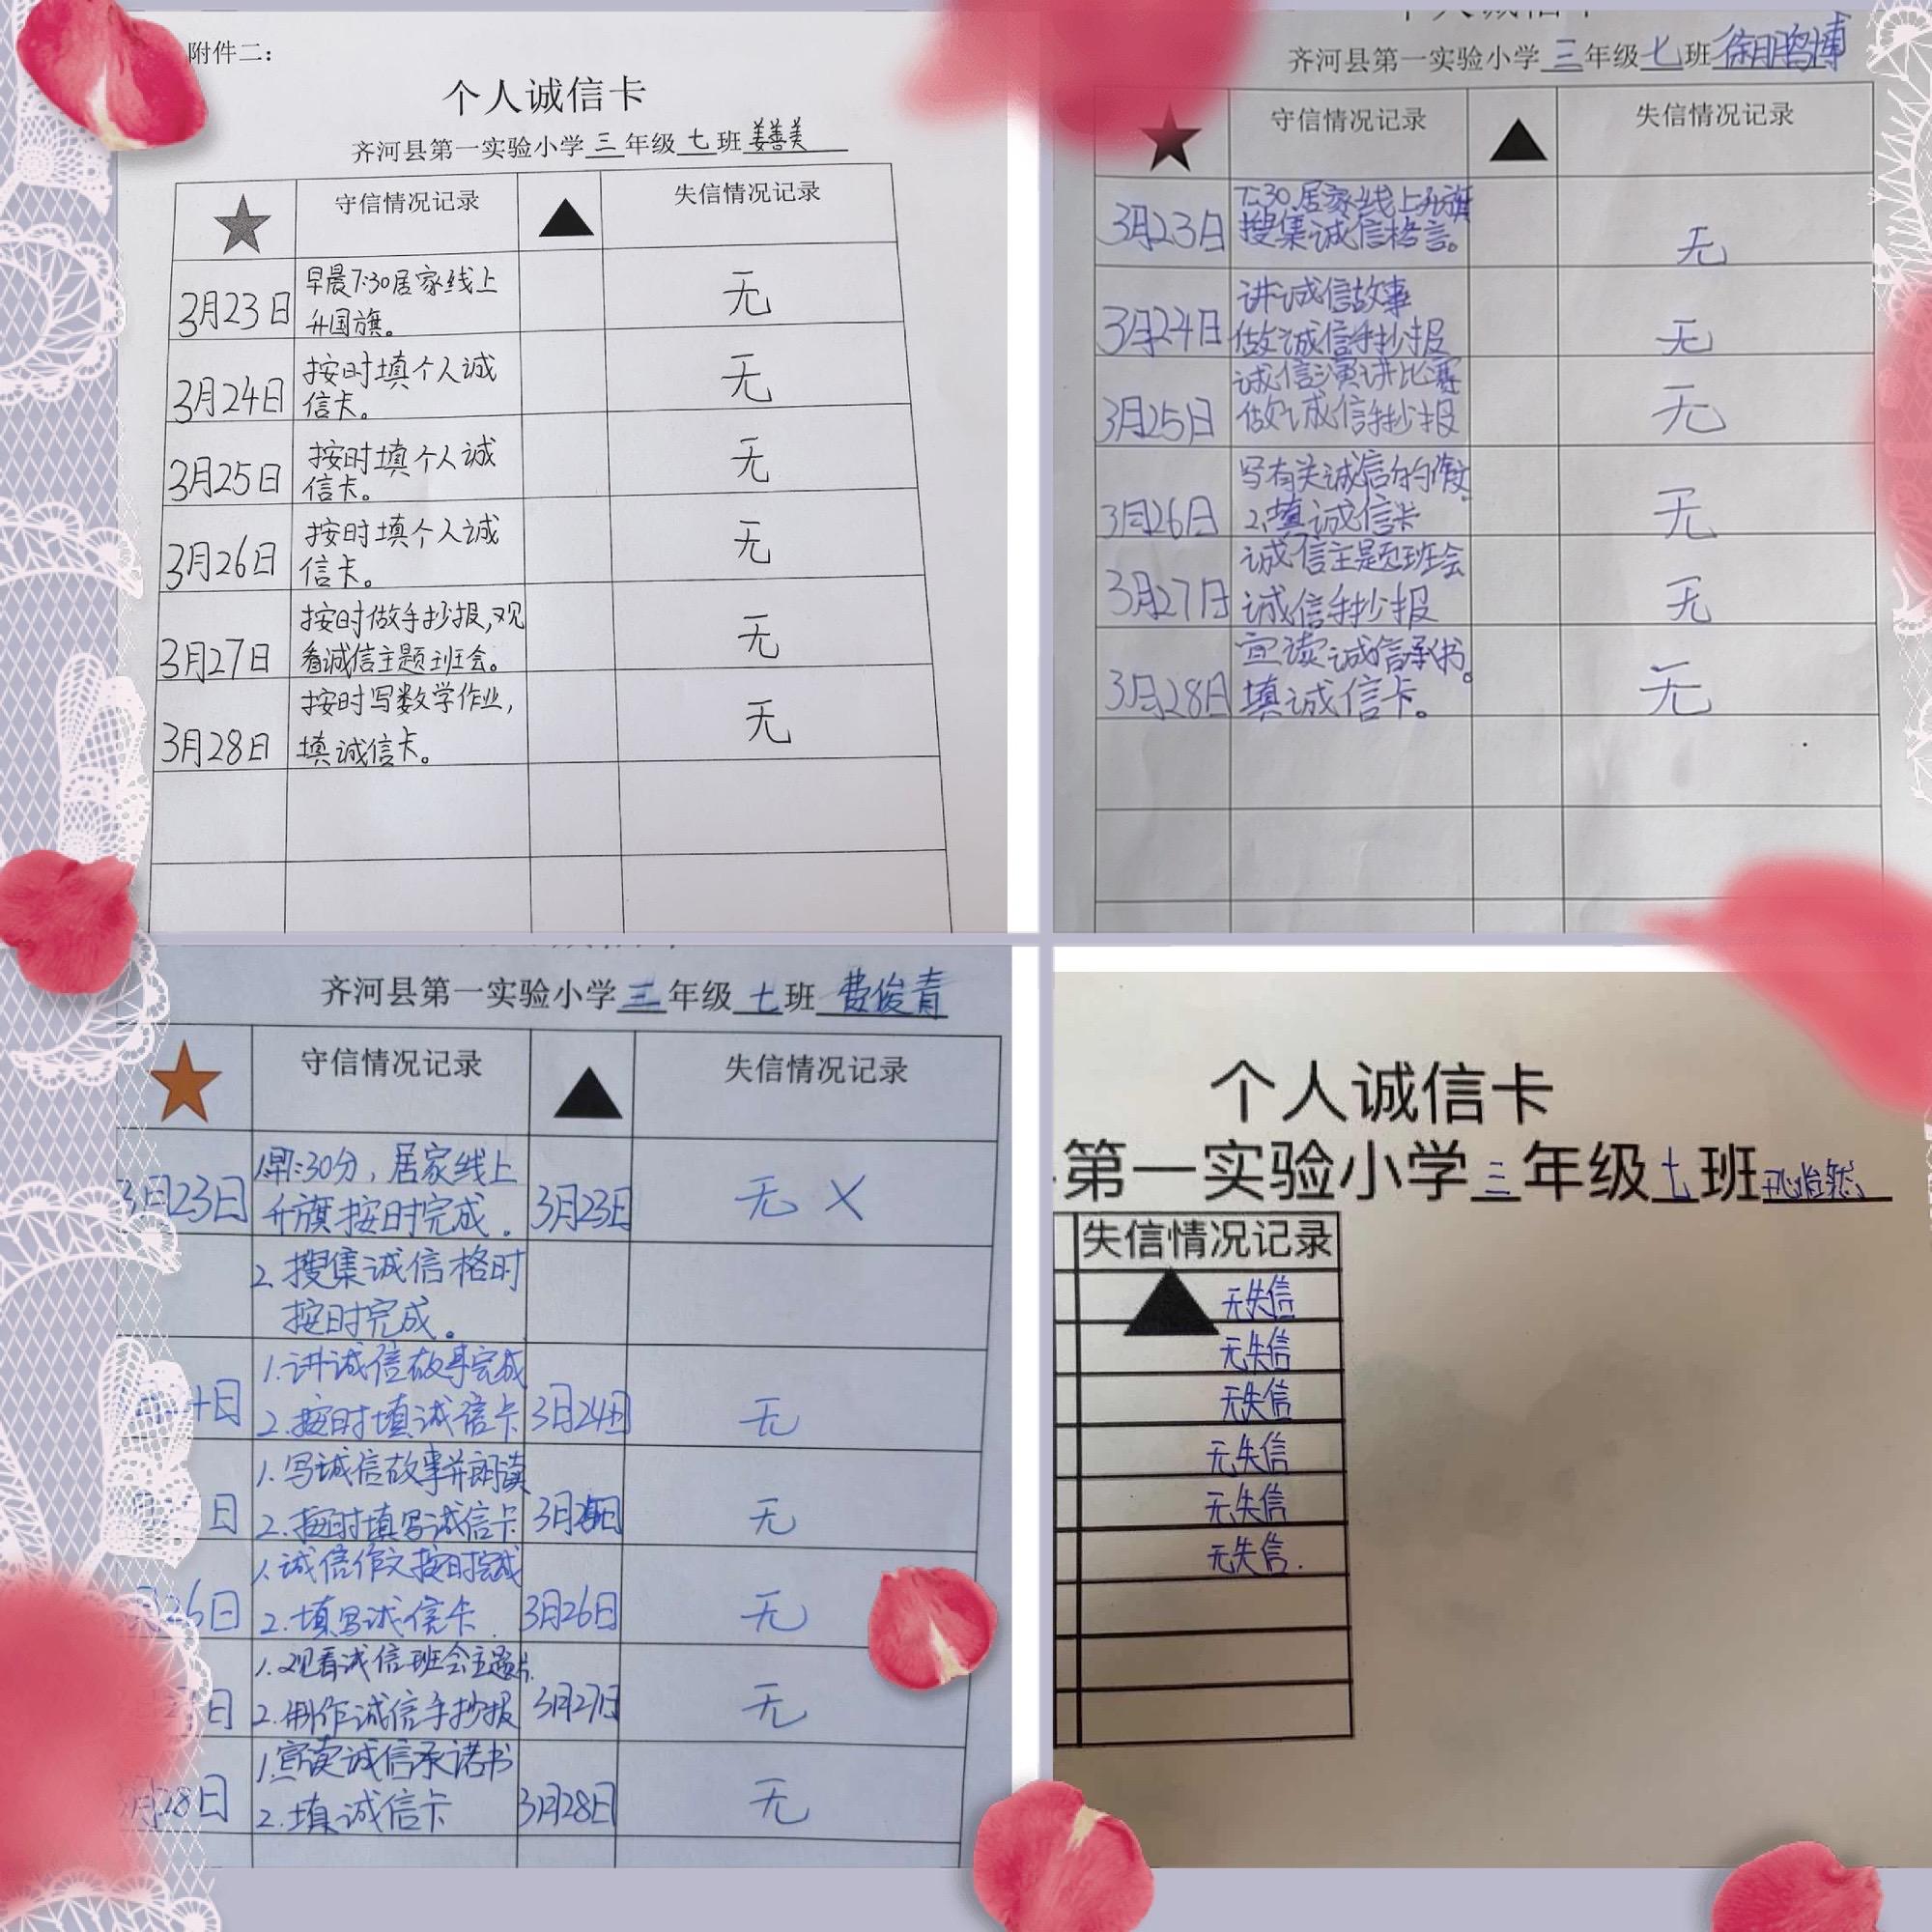 附件二：
个人诚信卡
齐河县第一实验小学三年级七班姜善美
守信情况记录 失信情况记录
3月23日 早晨7:30居家线上
升国旗。 无
3月24日 按时填个人诚
信卡。 无
3月25日 按时填个人诚
信卡。 无
3月26日 按时填个人诚
信卡。 无
3月27日 按时做手抄报,观
看诚信主题班会。 无
3月28日 按时写数学作业,
填诚信卡。 无
齐河县第一实验小学三年级七班
守信情况记录 失信情况记录
3月23日 7:30居家线上升旗
搜集诚信格言。 无
3月24日 讲诚信故事
做诚信手抄报 无
3月25日 诚信演讲比赛
做诚信手抄报 无
3月26日 写有关诚信的作文
2.填诚信卡 无
3月27日 诚信主题班会
诚信手抄报 无
3月28日 宣读诚信承书。
填诚信卡。 无
齐河县第一实验小学三年级七班费俊青
守信情况记录 失信情况记录
3日23日 :30分，居家线上
升旗按时完成. 3月23日 无 X
2.搜集诚信格时
按时完成。
1.讲诚信故事完成
日 2.按时填诚信卡 3月24日 无
1.写诚信故事并朗读
日 2.按时填写诚信卡 3月25日 无
1.诚信作文按时完成
26日 2.填写诚信卡. 3月26日 无
1.观看诚信班会主题
日 2.制作诚信手抄报 3月27日 无
1.宣读诚信承诺书
月28日 2.填诚信卡 3月28日 无
个人诚信卡
第一实验小学三年级七班
失信情况记录
无失信
无失信
无失信
无失信
无失信
无失信.